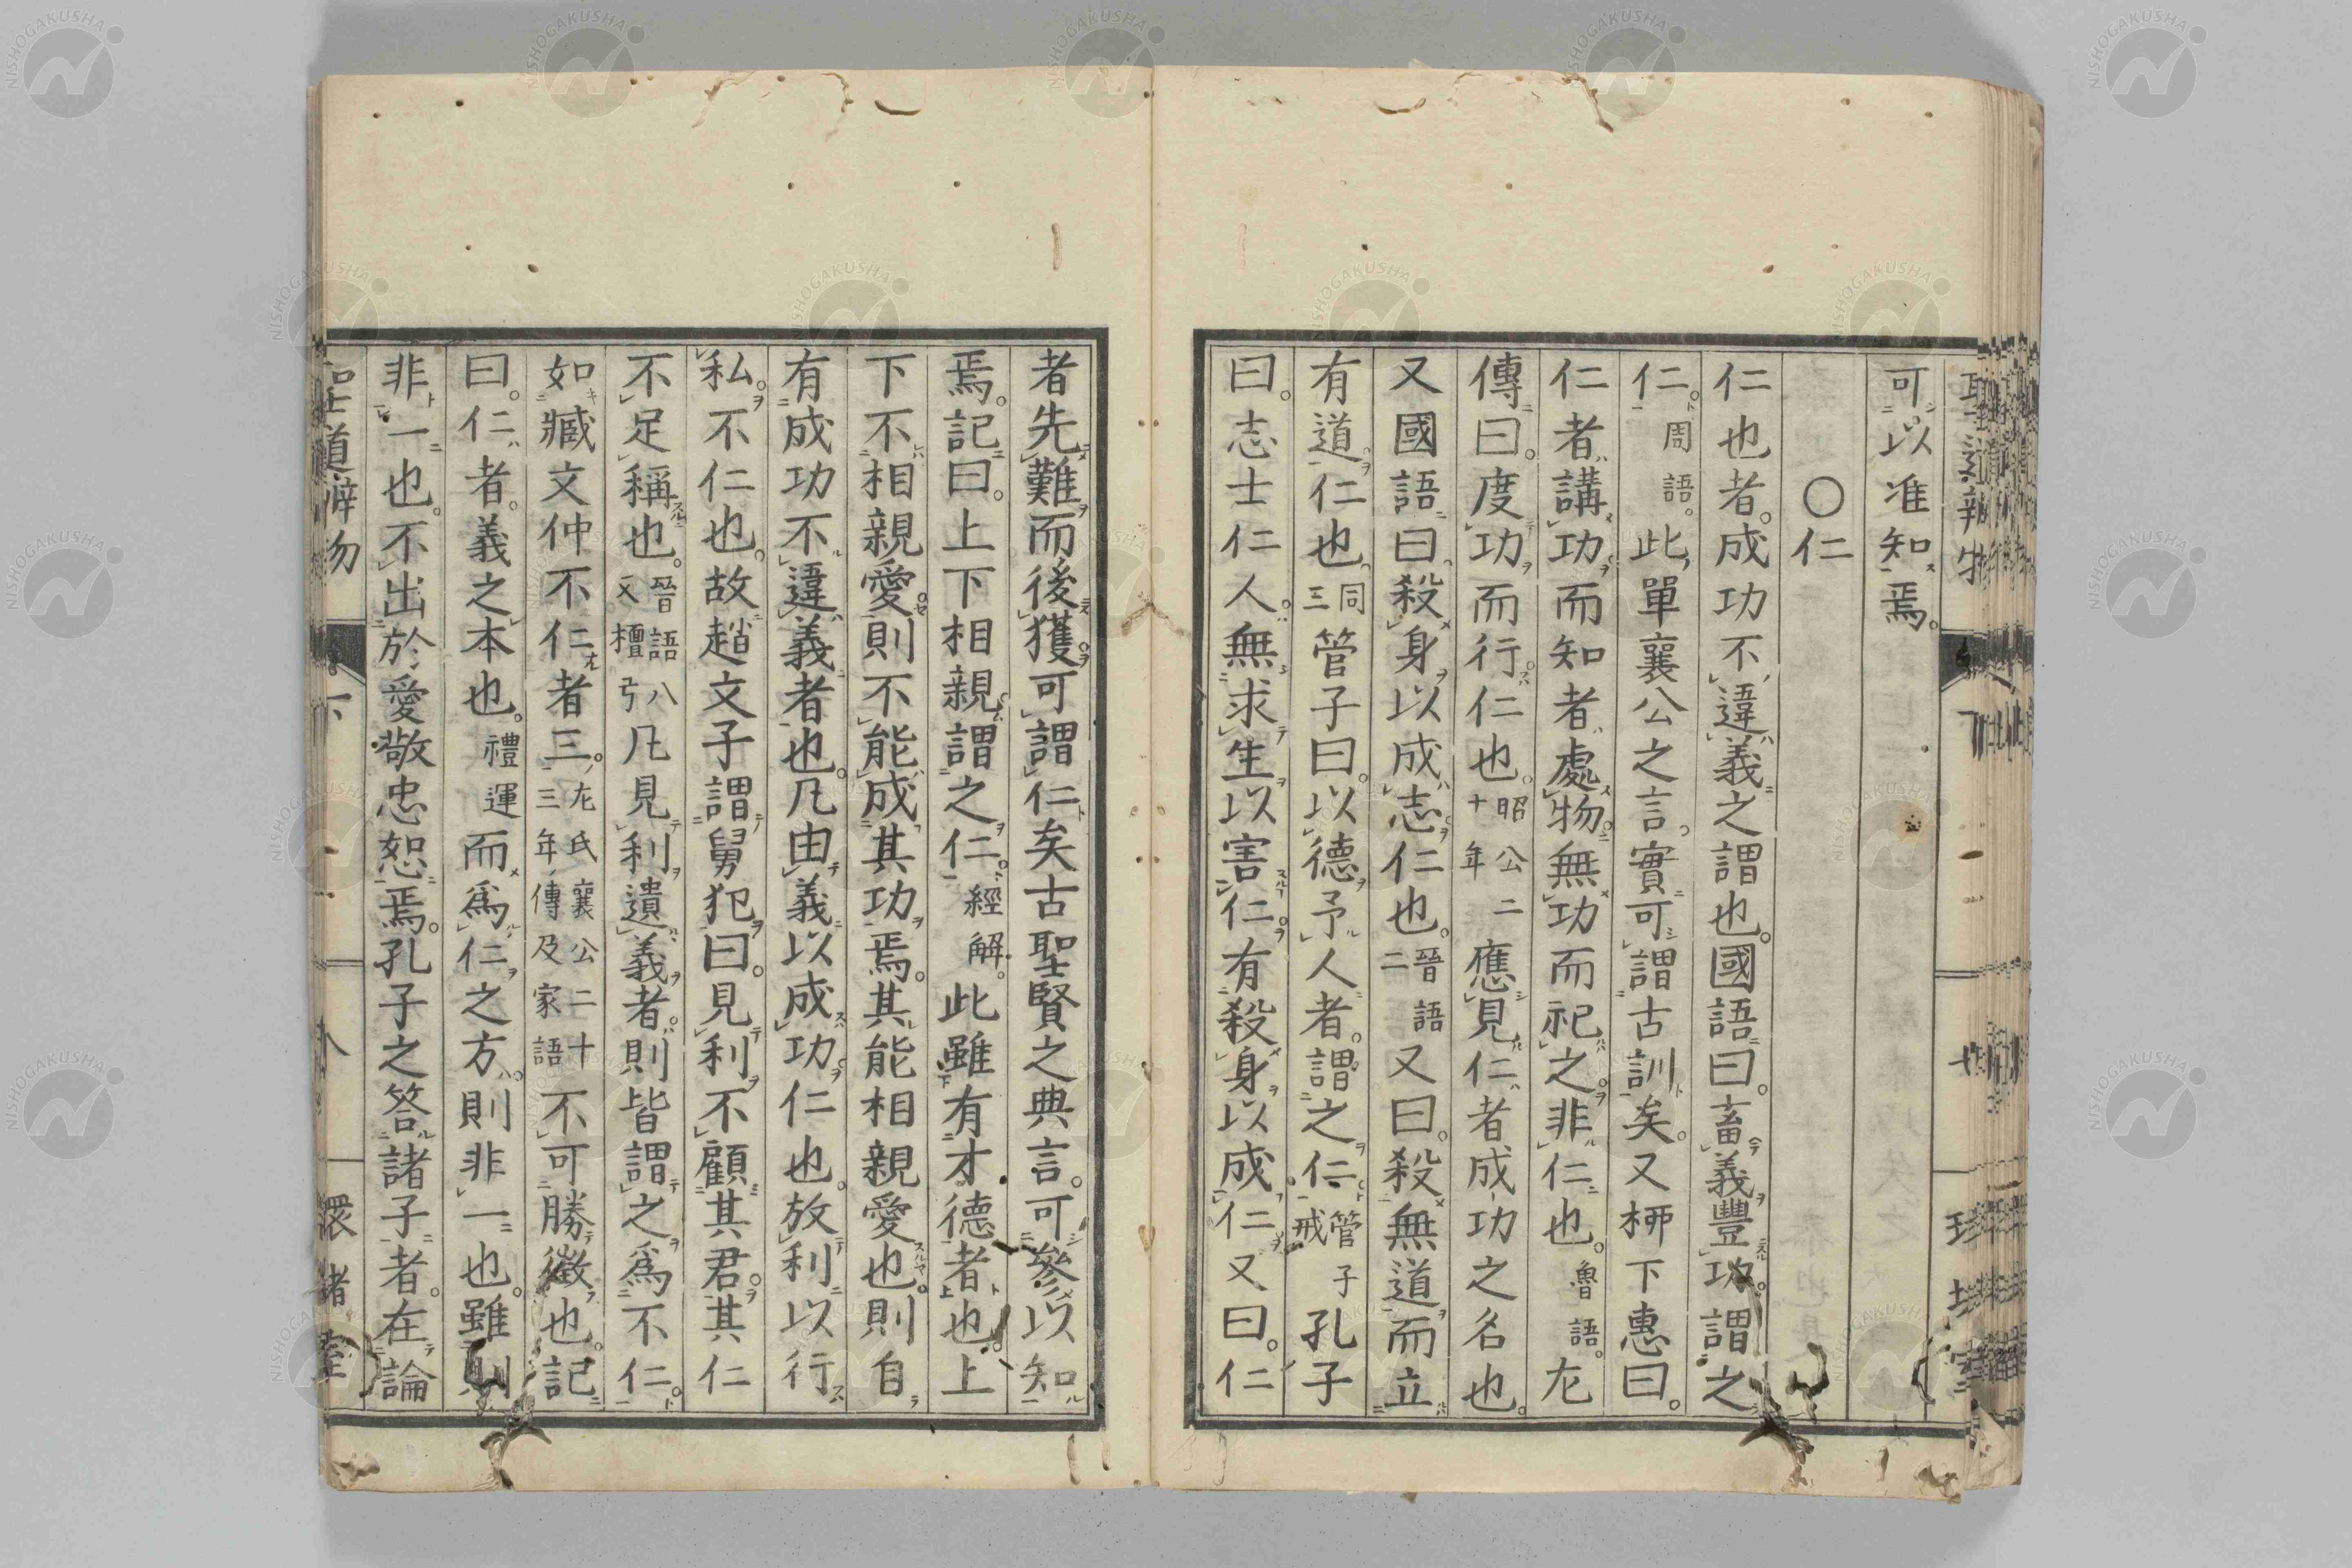 可以准知焉。
〇仁
仁也者。成功不違義之謂也。國語曰。畜義豐功。謂之
仁。周語。此單襄公之言。實可謂古訓矣。又桺下惠曰。
仁者講功而知者處物。無功而祀之。非仁也。魯語。左
傳曰。度功而行。仁也。昭公二十年應見仁者成功之名也。
又國語曰。殺身以成志。仁也。晉語二又曰。殺無道而立
有道。仁也。同三管子曰。以德予人者。謂之仁。管子戒孔子
曰。志士仁人。無求生以害仁。有殺身以成仁。又曰。仁
者先難而後獲。可謂仁矣古聖賢之典言。可參以知
焉。記曰。上下相親。謂之仁。經解。此雖有才德者也。上
下不相親愛。則不能成其功焉。其能相親愛也。則自
有成功不違義者也。凡由義以成功。仁也。放利以行
私。不仁也。故趙文子謂舅犯曰。見利不顧其君。其仁
不足稱也。晉語八又檀弓凡見利遺義者。則皆謂之爲不仁。
如臧文仲不仁者三。左氏襄公二十三年傳及家語不可勝徵也。記
曰。仁者。義之本也。禮運而爲仁之方。則非一也。雖則
非一也。不出於愛敬忠恕焉。孔子之答諸子者。在論
聖道辨物 下 八 環堵室
NISHOGAKUSHA